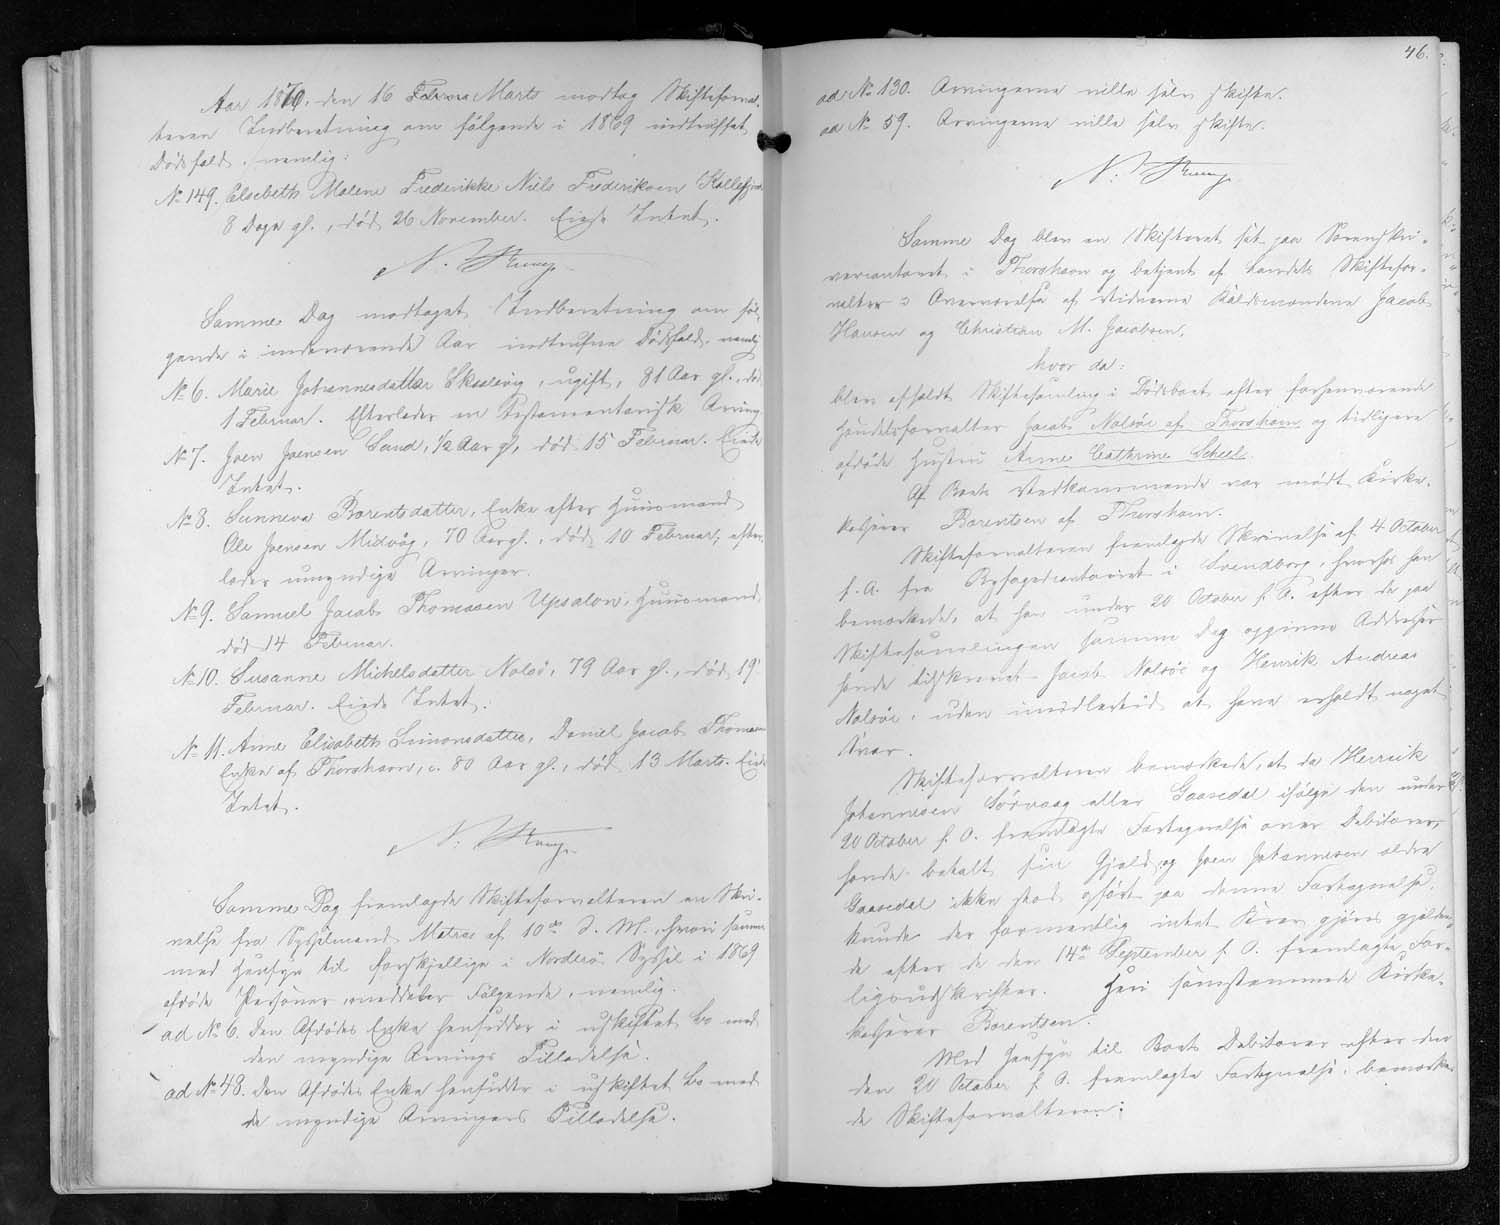 Aar 1870, den 16 Marts modtog Skifteforval-
teren Indberetning om følgende i 1869 indtruffet
Dødsfald, nemlig:
No 149. Elsebeth Malene Frederikke Niels Frederiksen Kollefjord
8 Dage gl., død 26 November. Eiede Intet.
Samme Dag modtaget Indberetning om føl-
gende i indeværende Aar indtrufne Dødsfald, nemlig
No 6. Marie Johannesdatter Skaalevig, ugift, 81 Aar gl., død
1 Februar. Efterlader en testamentarisk Arving
No 7. Joen Joensen Sand, 1/2 Aar gl., død 15 Februar. Eiede
Intet.
No 8. Sunneva Barentsdatter, Enke efter Huusmand
Ole Joensen Midvåg, 70 Aar gl., død 10 Februar, efter-
lader umyndige Arvinger.
No 9. Samuel Jacob Thomassen Upsalon, Huusmand
død 14 Februar.
No 10. Susanne Michelsdatter Nolsö, 79 Aar gl., død 19
Februar. Eiede Intet.
No 11. Anne Elisabeth Simonsdatter, Daniel Jacob Thomasen
Enke af Thorshavn, c. 80 Aar gl., død 13 Marts. Eiede
Intet.
Samme Dag fremlagde Skifteforvalteren en Skri-
velse fra Sysselmand Matras af 10de d. M., hvori samme
med Hensyn til forskjellige i Norderö Syssel i 1869
afdøde Personer meddeler Følgende, nemlig.
ad No 6. Den Afdødes Enke hensidder i uskiftet Bo med
den myndige Arvings Tilladelse.
ad No 48. Den Afdødes Enke hensidder i uskiftet Bo med
de myndige Arvingers Tilladelse.
46.
ad No 130. Arvingerne ville selv skifte.
ad No 59. Arvingerne ville selv skifte.
Samme Dag blev en Skifteret sat paa Sorenskri-
vercontoret i Thorshavn og betjent af Landets Skiftefor-
valter i Overværelse af Vidnerne Kaldsmændene Jacob
Hansen og Christian M. Jacobsen,
hvor da:
blev afholdt Skiftesamling i Dødsboet efter forhenværende
Handelsforvalter Jacob Nolsöe af Thorshavn og tidligere
afdøde Hustru Anne Cathrine Scheel.
Af Boets Vedkommende var mødt Kirke-
kasserer Barentsen af Thorshavn.
Skifteforvalteren fremlagde Skrivelse af 4 October
f. A. fra Byfogedcontoiret i Svendborg, hvorhos han
bemærkede, at han under 20 October f. A. efter de paa
Skiftesamlingen samme Dag opgivne Addresser
havde tilskrevet Jacob Nolsöe og Henrik Andreas
Nolsöe, uden imidlertid at have erholdt noget
Svar.
Skifteforvalteren bemærkede, at da Henrik
Johannesen Sörvaag eller Gaasedal ifølge den under
20 October f. A. fremlagte Fortegnelse over Debitorer,
havde betalt sin Gjæld, og Joen Johannesen ældre
Gaasedal ikke stod opført paa denne Fortegnelse,
kunde der formentlig intet Krav gjøres gjælden-
de efter de den 14de September f. A. fremlagte For-
ligsudskrifter. Heri samstemmede Kirke-
kasserer Barentsen.
Med Hensyn til Boets Debitorer efter den
den 20 October f. A. fremlagte Fortegnelse, bemærke-
de Skifteforvalteren: